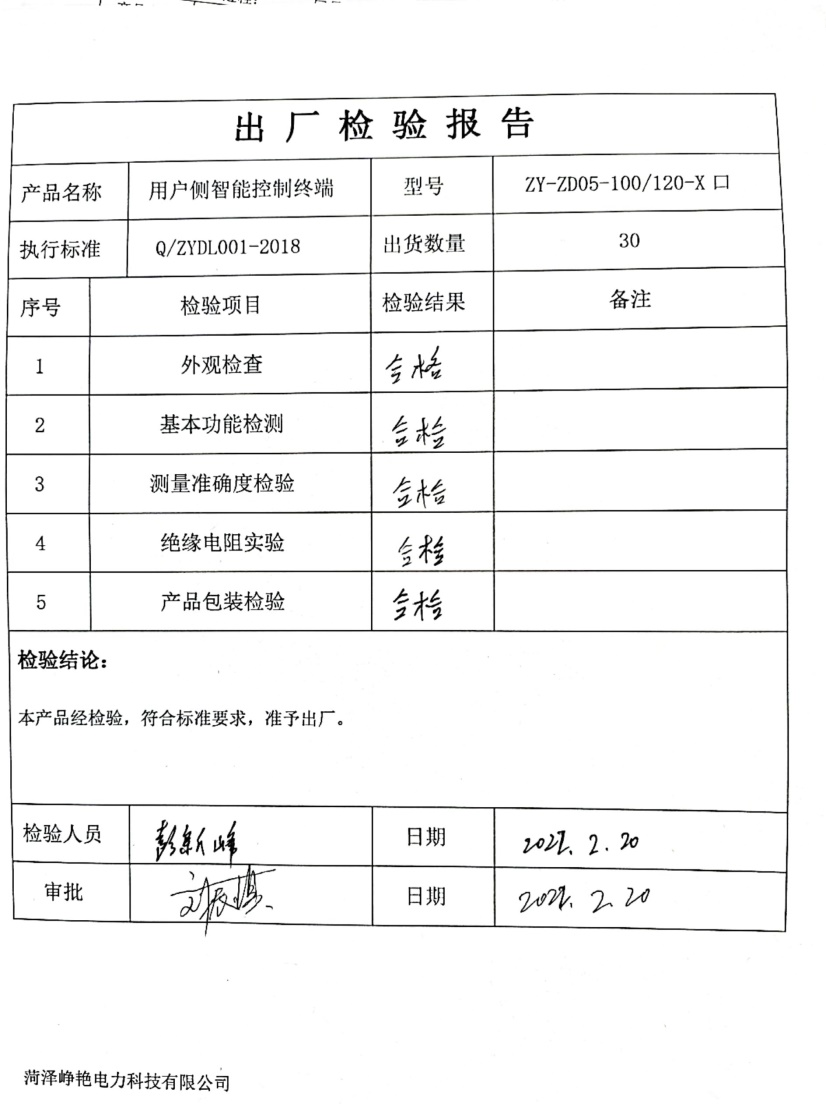 出厂检验报告
产品名称 用户侧智能控制终端 型号 ZY-ZD05-100/120-X口
执行标准 Q/ZYDL001-2018 出货数量 30
序号 检验项目 检验结果 备注
1 外观检查 合格
2 基本功能检测 合格
3 测量准确度检验 合格
4 绝缘电阻实验 合格
5 产品包装检验 合格
检验结论:
本产品经检验，符合标准要求，准予出厂。
检验人员 彭新峰 日期 2.20
审批 日期 2.20
菏泽峥艳电力科技有限公司